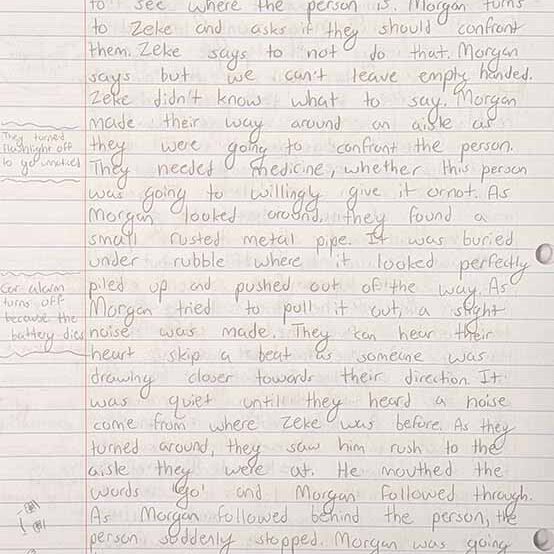 to see where the person is. Morgan turns
to Zeke and asks if they should confront
them. Zeke says to not do that. Morgan
says but we can't leave empty handed.
Zeke didn't know what to say. Morgan
made their way around an aisle as
They turned
flashlight off
to go unnoticed
they were going to confront the person.
They needed medicine, whether this person
was going to willingly give it or not. As
Morgan looked around, they found a
small rusted metal pipe. It was buried
under rubble where it looked perfectly
Car alarm
turns off
because the
battery dies
piled up and pushed out of the way. As
Morgan tried to pull it out, a slight
noise was made. They can hear their
heart skip a beat as someone was
drawing closer towards their direction. It
was quiet until they heard a noise
come from where Zeke was before. As they
turned around, they saw him rush to the
aisle they were at. He mouthed the
words 'go' and Morgan followed through.
As Morgan followed behind the person, the
person suddenly stopped. Morgan was going